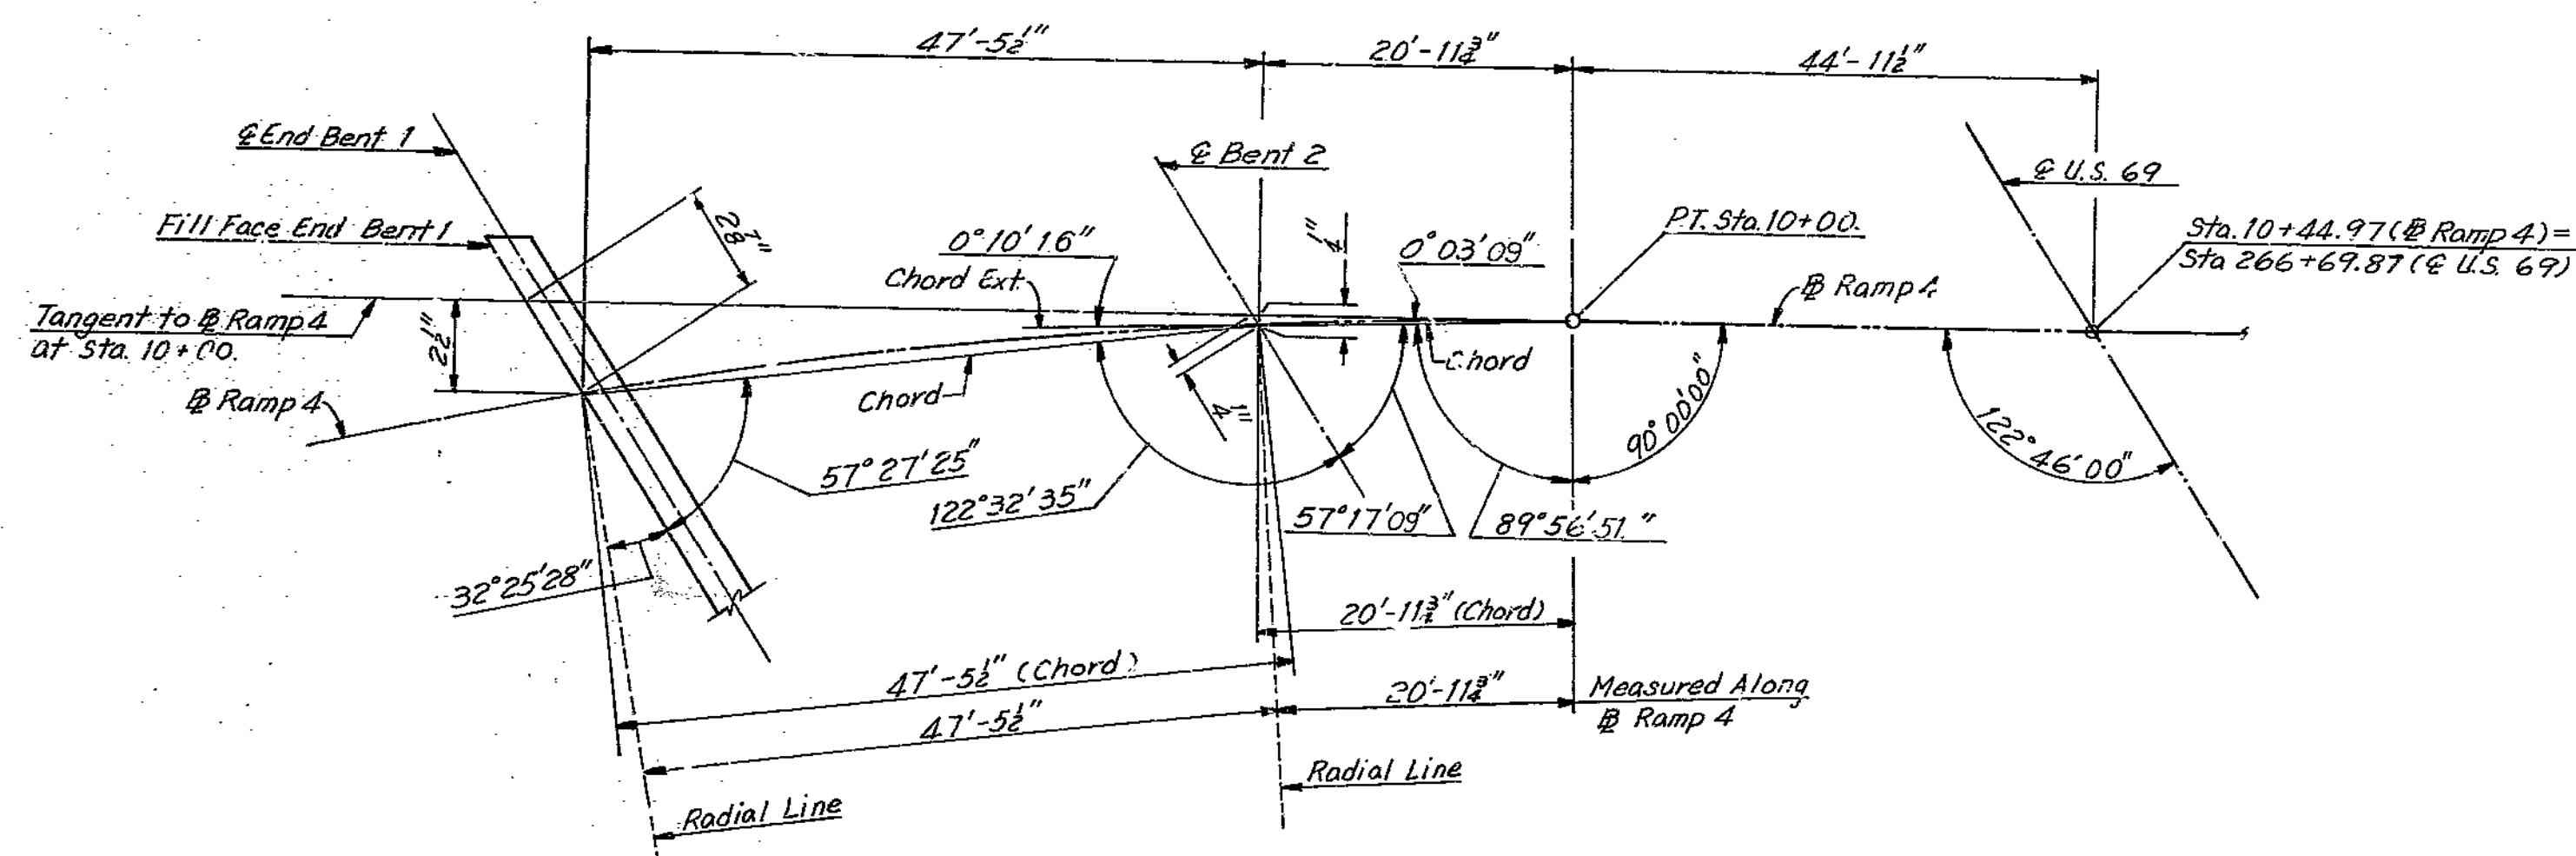 47'-5½"
20'-11¾"
44'-11½"
℄ End Bent 1
℄ Bent 2
℄ U.S. 69
Fill Face End Bent 1
2⅞"
0°10'16"
¼"
0°03'09"
P.T. Sta. 10+00.
Sta. 10+44.97 (⅊ Ramp 4) =
Sta 266+69.87 (℄ U.S. 69)
Chord Ext.
⅊ Ramp 4
Tangent to ⅊ Ramp 4
at Sta. 10+00.
2½"
⅊ Ramp 4
Chord
Chord
¼"
90°00'00"
122°46'00"
57°27'25"
122°32'35"
57°17'09"
89°56'51."
32°25'28"
20'-11¾" (Chord)
47'-5½" (Chord)
47'-5½"
20'-11¾"
Measured Along
⅊ Ramp 4
Radial Line
Radial Line